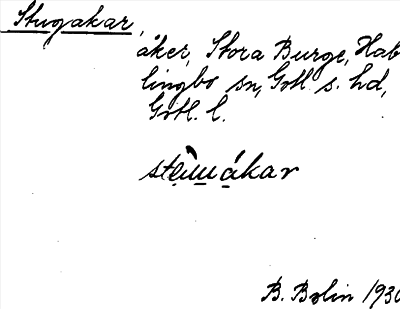 Stugakar,
åker, Stora Burge, Hab
lingbo sn, Gotl. s. hd,
Gotl. l.
B. Bolin 1930